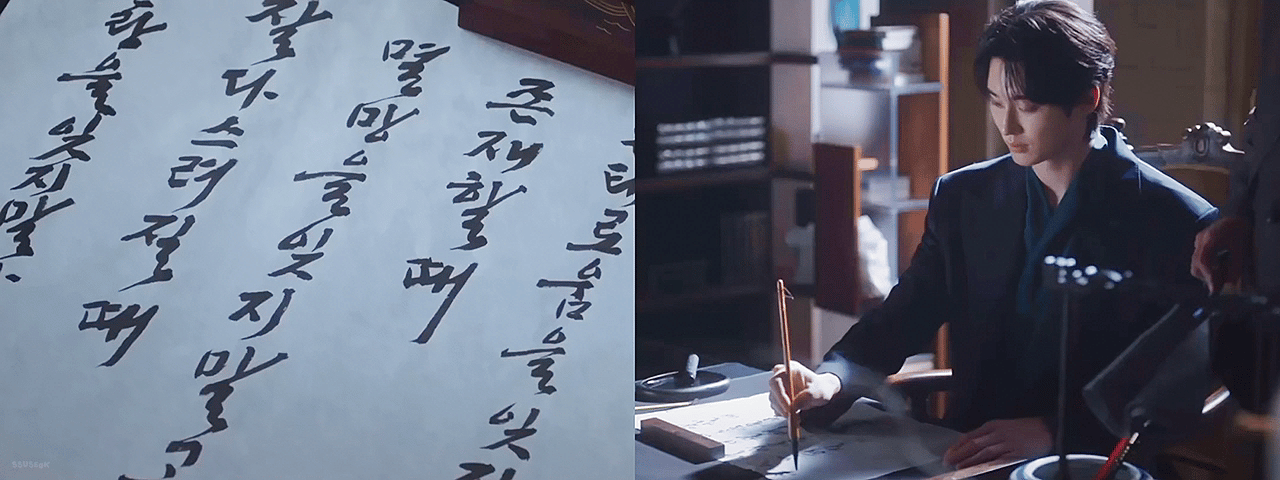 태로움을 잊지
존재할 때
멸망을 잊지 말고
잘 다스려질 때
란을 잊지 말